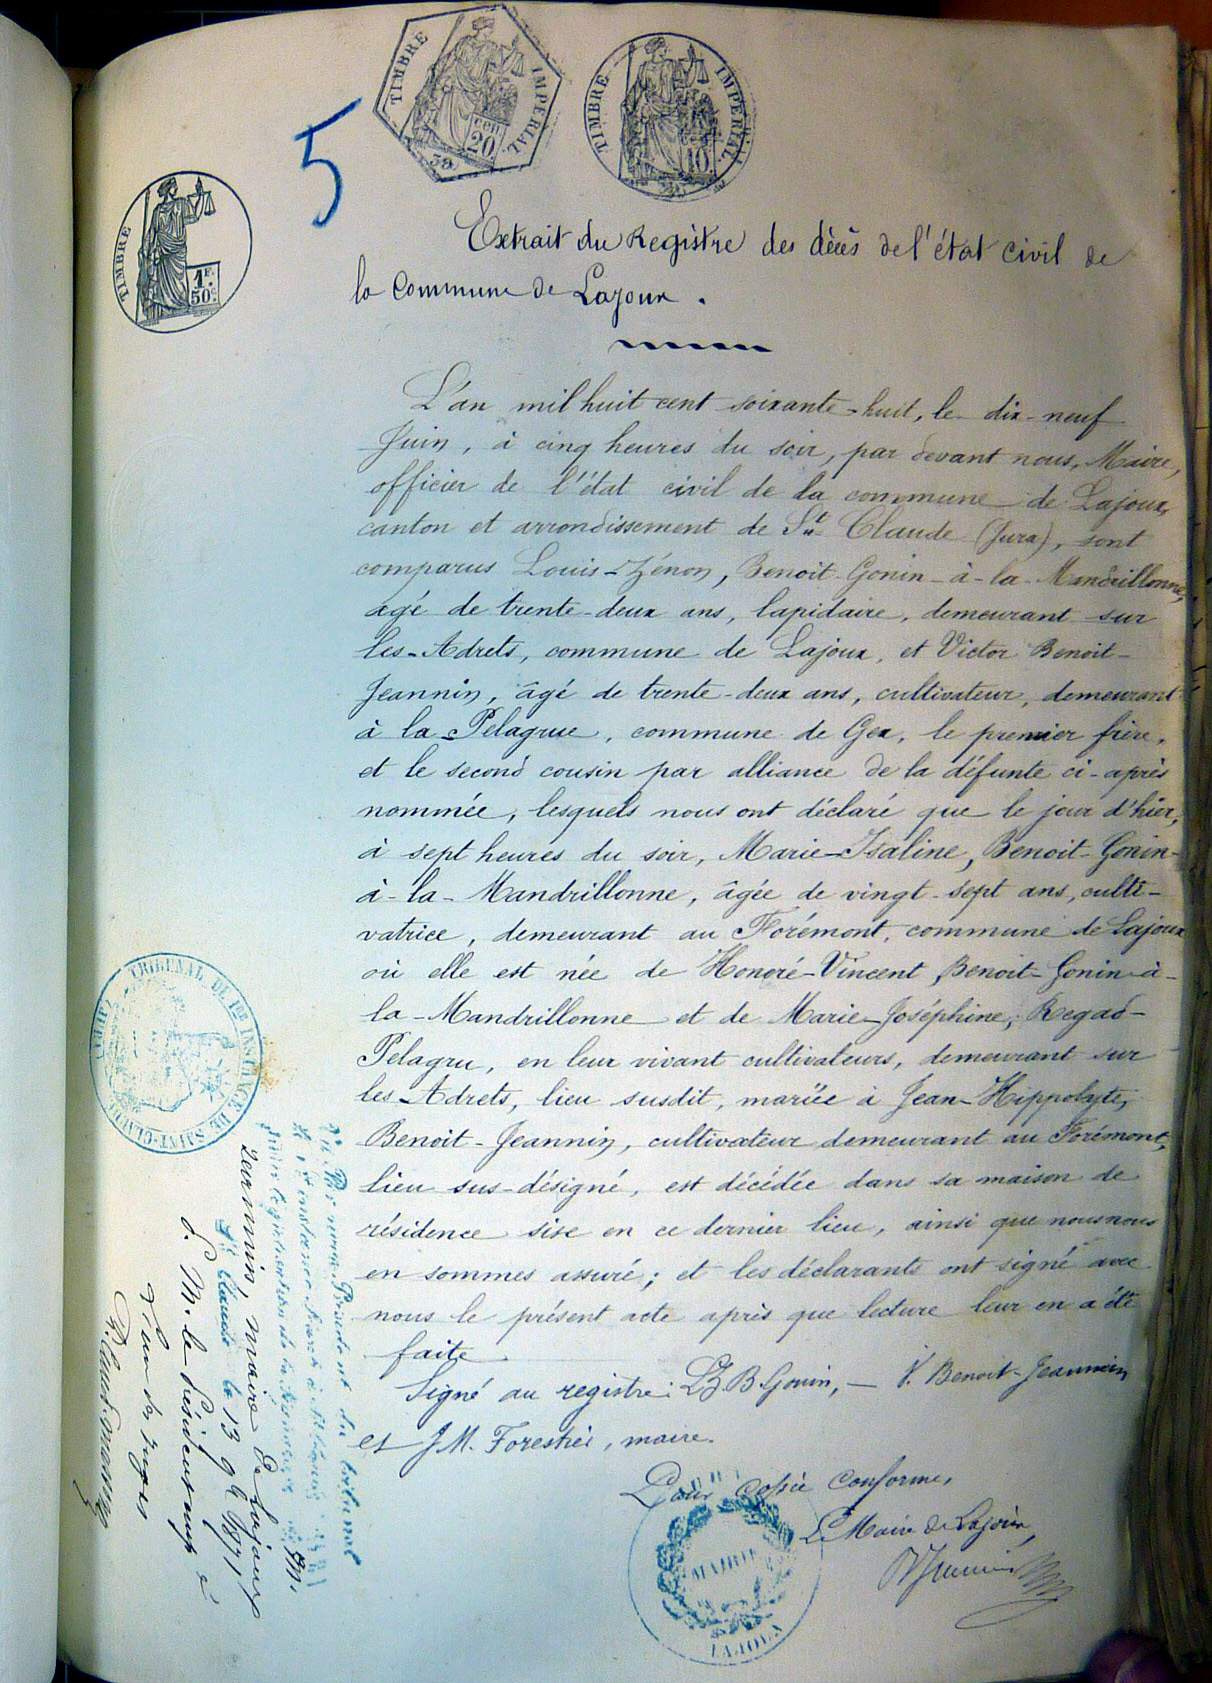 TIMBRE IMPERIAL
cen.
20
39
TIMBRE IMPERIAL
10
5
TIMBRE
1F.
50c
Extrait du Registre des décès de l'état civil de
la Commune de Lajoux.
L'an mil huit cent soixante-huit, le dix-neuf
Juin, à cinq heures du soir, par devant nous, Maire,
officier de l'état civil de la commune de Lajoux,
canton et arrondissement de St Claude (Jura), sont
comparus Louis-Zénon, Benoit-Gonin-à-la-Mandrillonne,
âgé de trente-deux ans, lapidaire, demeurant sur
les-Adrets, commune de Lajoux, et Victor Benoit-
Jeannin, âgé de trente-deux ans, cultivateur, demeurant
à la Pelagrue, commune de Gex, le premier frère,
et le second cousin par alliance de la défunte ci-après
nommée, lesquels nous ont déclaré que le jour d'hier,
à sept heures du soir, Marie-Isaline, Benoit-Gonin-
à-la-Mandrillonne, âgée de vingt-sept ans, culti-
vatrice, demeurant au Forémont, commune de Lajoux
où elle est née de Honoré-Vincent, Benoit-Gonin-à-
la-Mandrillonne et de Marie-Joséphine, Regad-
Pelagru, en leur vivant cultivateurs, demeurant sur
les Adrets, lieu susdit, mariée à Jean-Hippolyte,
Benoit-Jeannin, cultivateur demeurant au Forémont,
lieu sus-désigné, est décédée dans sa maison de
résidence sise en ce dernier lieu, ainsi que nous nous
en sommes assuré; et les déclarants ont signé avec
nous le présent acte après que lecture leur en a été
faite
Signé au registre: L.Z.B.Gonin, — V. Benoit-Jeannin
et J.M. Forestier, maire.
Pour copie conforme,
Le Maire de Lajoux,
MAIRIE
LAJOUX
TRIBUNAL DE 1ère INSTANCE DE SAINT-CLAUDE
(JURA)
Vu Par nous Président du tribunal
de
pour légalisation de la signature de M.
Jeannin, maire de Lajoux
St Claude le 13 9bre 1871
P. M. le Président emp
l'un des juges